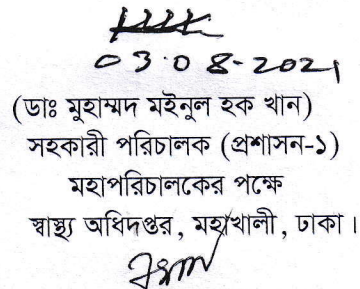 03.08-2021
(ডাঃ মুহাম্মদ মইনুল হক খান)
সহকারী পরিচালক (প্রশাসন-১)
মহাপরিচালকের পক্ষে
স্বাস্থ্য অধিদপ্তর, মহাখালী, ঢাকা।